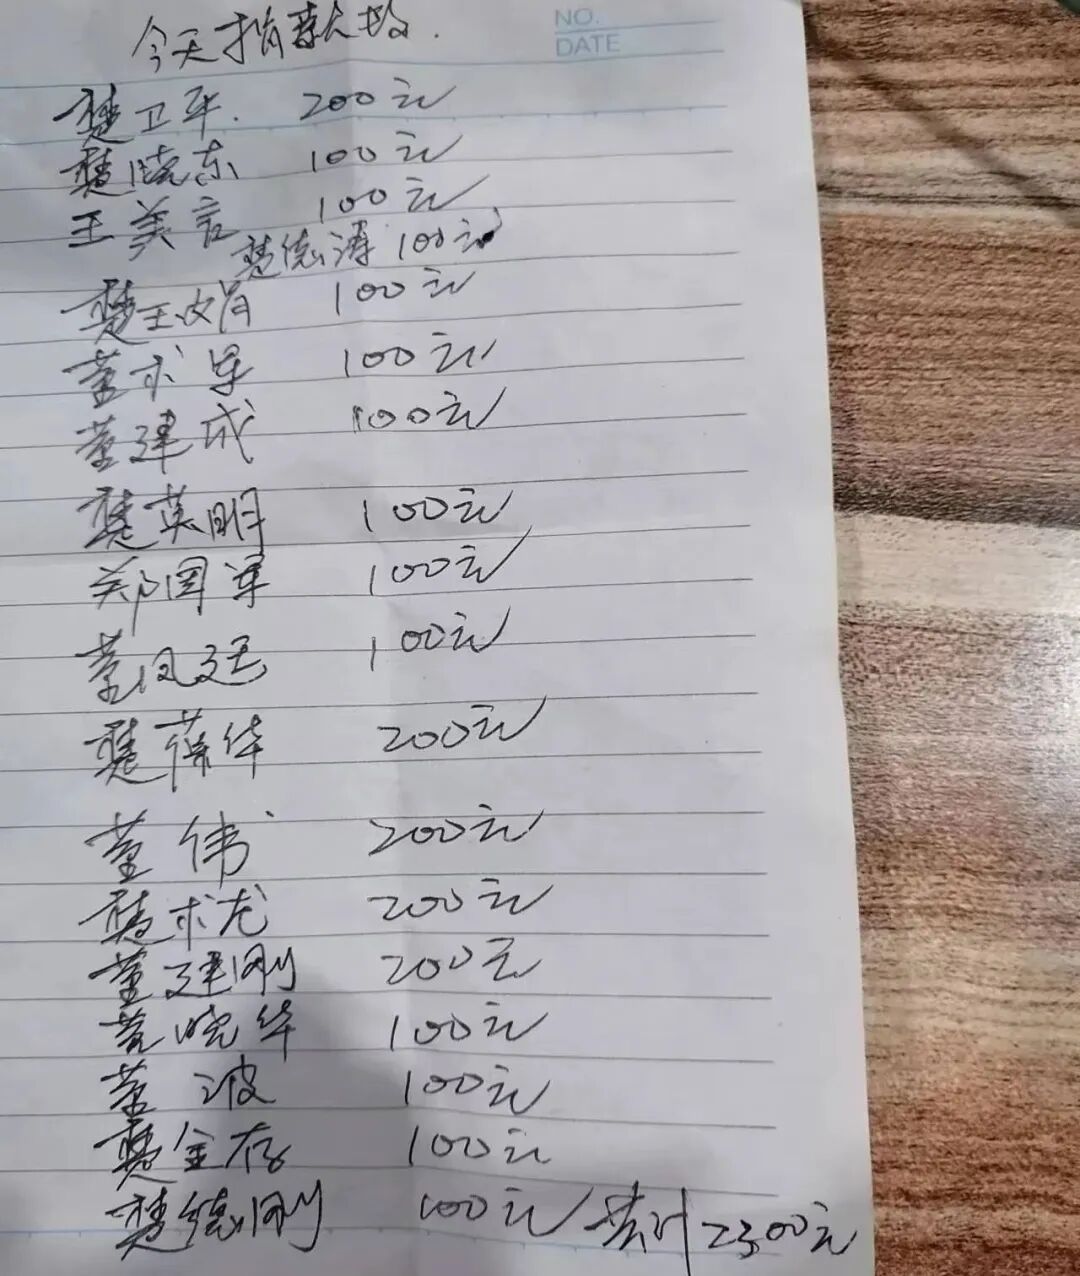 今天捐款如
NO.
DATE
楚卫平. 200元
楚晓东 100元
王美言 100元
楚德涛 100元
楚玉娟 100元
董术军 100元
董建成 100元
楚英明 100元
郑国军 100元
董凤廷 100元
楚葆华 200元
董伟 200元
楚术龙 200元
董建刚 200元
董晓华 100元
董波 100元
楚金存 100元
楚德刚 100元 共计2300元